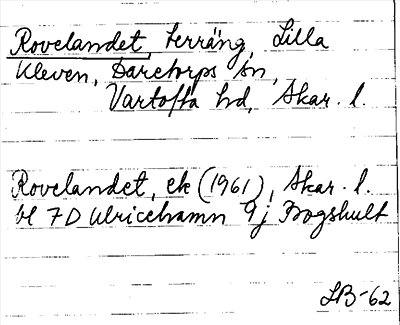 Rovelandet, terräng, Lilla
Kleven, Daretorps sn,
Vartofta hd, Skar. l.
Rovelandet, ek (1961), Skar. l.
bl 7D Ulricehamn 9j Bogshult
LB-62